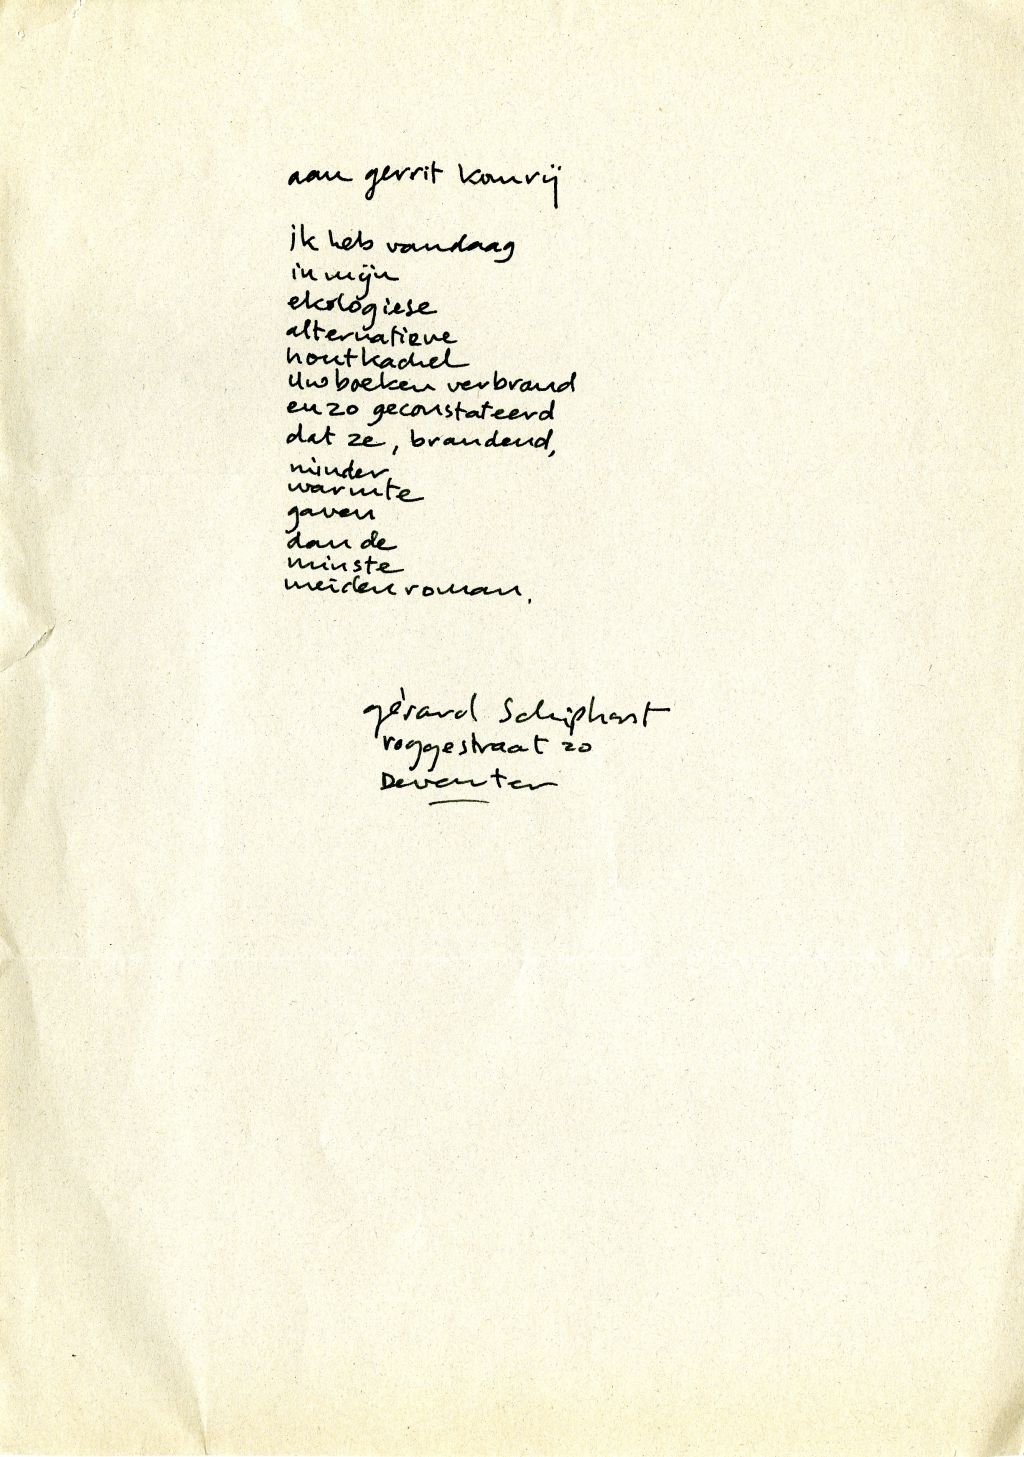 aan gerrit komrij
ik heb vandaag
in mijn
ekologiese
alternatieve
houtkachel
Uw boeken verbrand
en zo geconstateerd
dat ze, brandend,
minder
warmte
gaven
dan de
minste
meidenroman.
gérard Schiphorst
roggestraat 20
Deventer